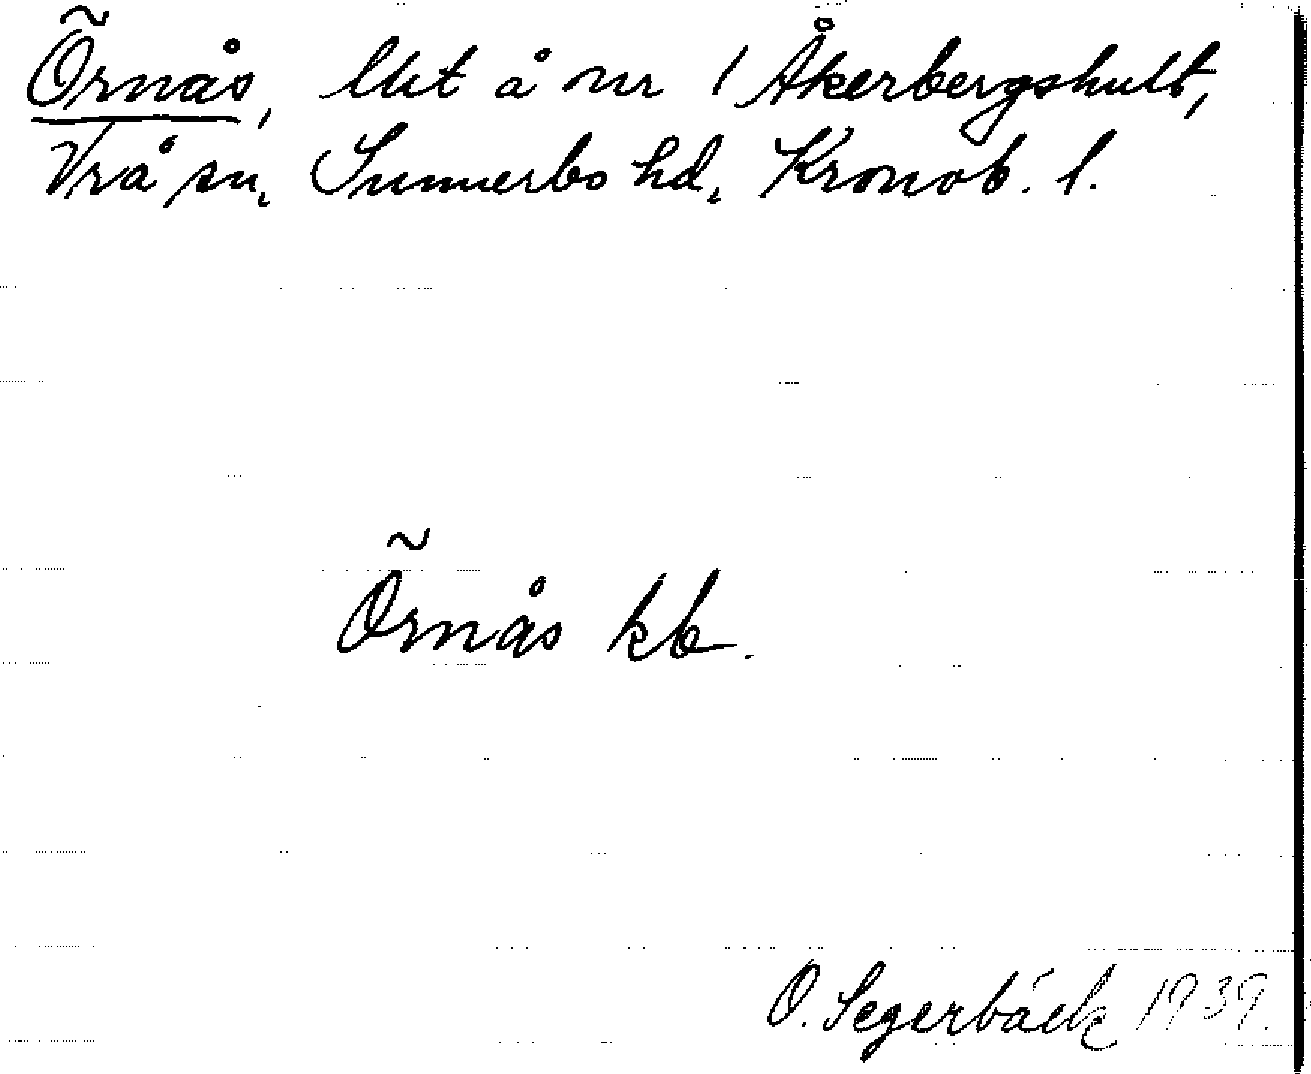 Õrnås, lht å nr 1 Åkerbergshult,
Vrå sn, Sunnerbo hd, Kronob. l.
Õrnås kb.
O. Segerbäck 1939.